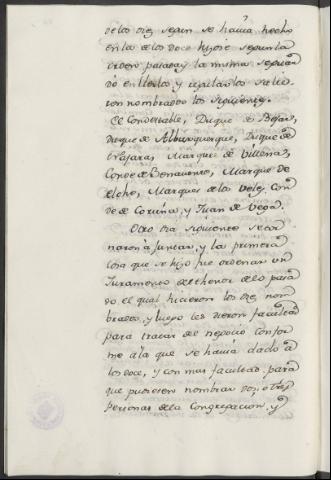 de los diez segun se havia hecho
en la de los doce hizose segun la
orden pasada y la misma se guar
dò en
ron nombrados los siguientes.
El Condestable, Duque de Bejar,
Duque de Alburquerque, Duque de
Najara, Marques de Villena,
Conde de Benavente, Marques de
Elche, Marques de los Velez Con
de de Coruña, y Juan de Vega.
Otro dia siguiente se tor
naron à juntar, y la primera
cosa que se hizo fue ordenar un
Juramento del thenor de lo pasa
do el qual hicieron los diez nom
brados, y luego les dieron facultad
para tratar del negocio confor
me à la que se havia dado à
los doce, y con mas facultad para
que pudiesen nombrar dos, o tres
personas de la Congregacion, y